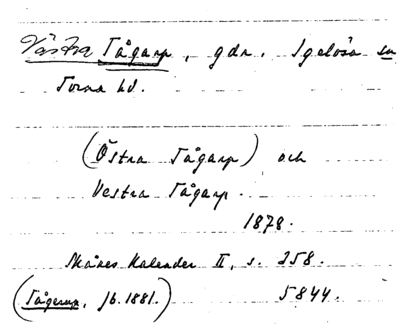 Västra Tågarp, gdn. Igelösa sn
Torna hd.
(Östra Tågarp) och
Vestra Tågarp.
1878.
Skånes Kalender II, s. 258.
(Tågerup, jb. 1881.) 5844.